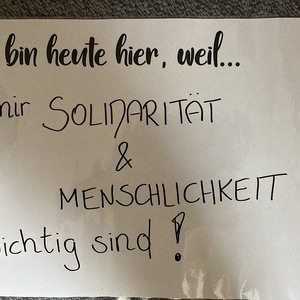 bin heute hier, weil...
mir SOLIDARITÄT
&
MENSCHLICHKEIT
ichtig sind!